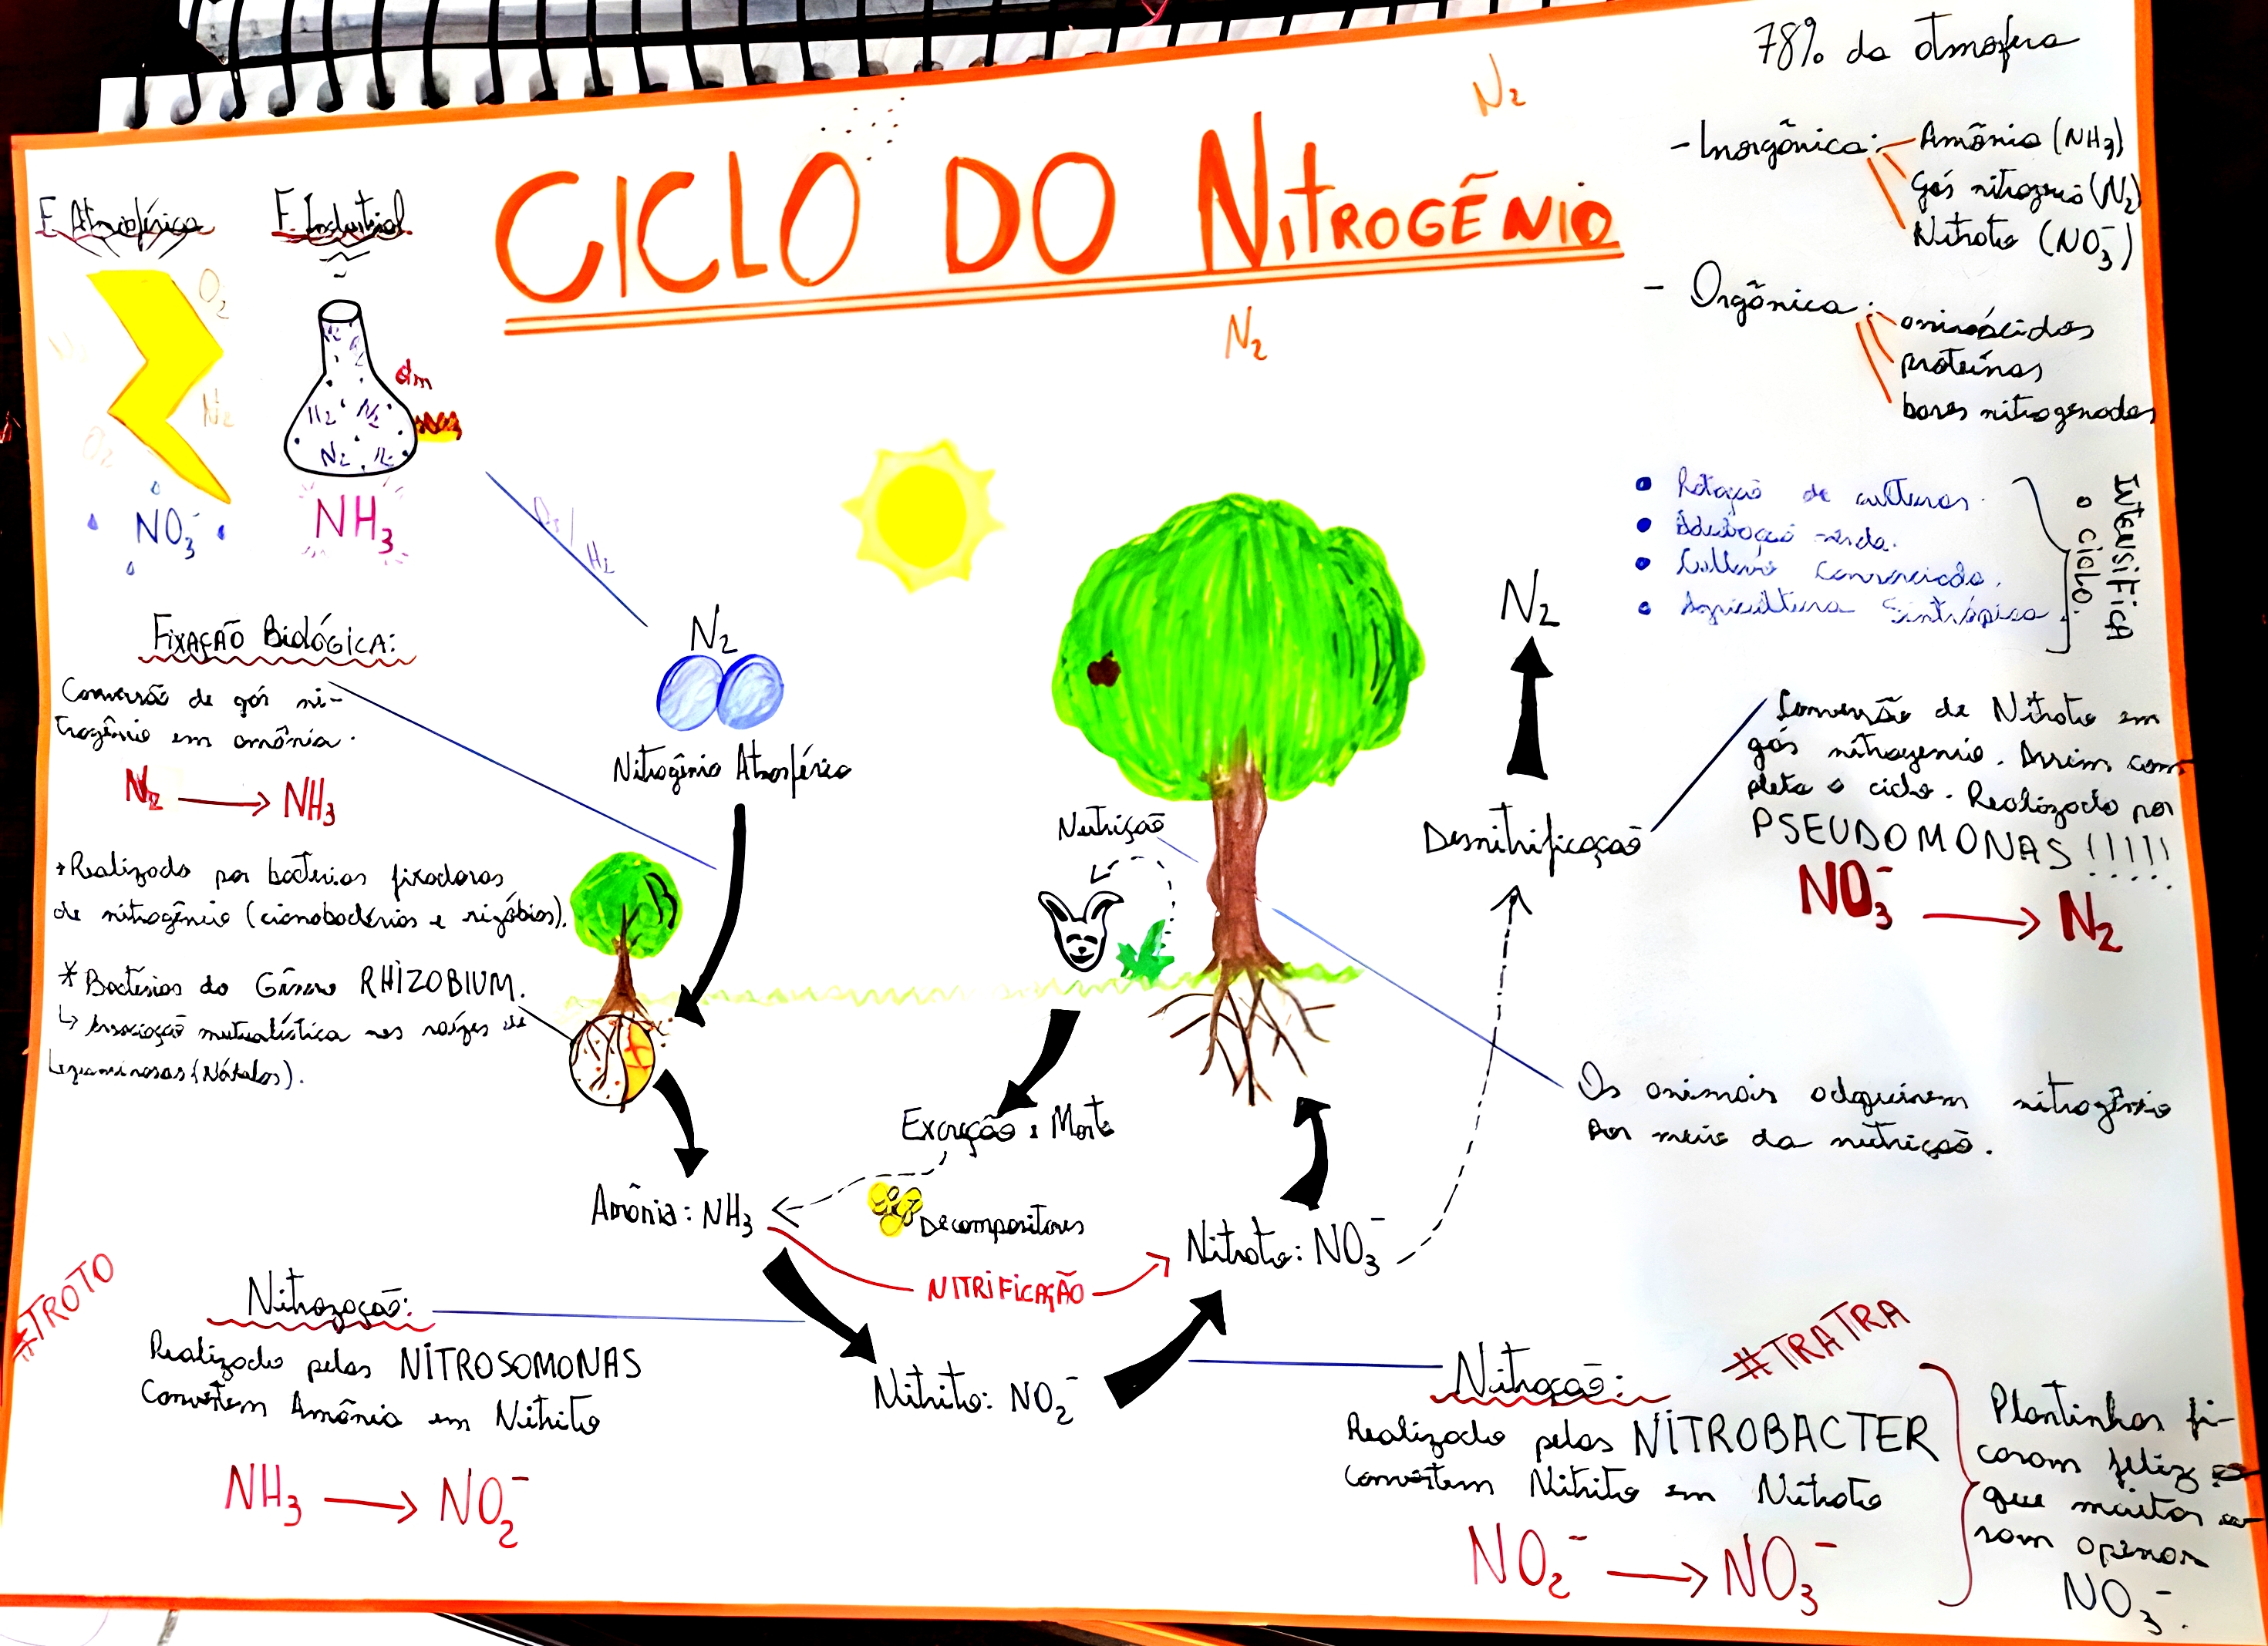 CICLO DO NITROGÊNIO
N₂
N₂
78% da atmofera
- Inorgânica:
Amônia (NH₃)
Gás nitrogenio (N₂)
Nitrato (NO₃⁻)
- Orgânica:
aminoácidos
proteínas
bases nitrogenadas
F. Atmosférica
O₂
N₂
N₂
O₂
NO₃⁻
F. Industrial
N₂
H₂ N₂
N₂ H₂
NH₃
H₂
• Rotação de culturas.
• Adubação verde.
• Cultivo Consorciado.
• Agricultura Sintrópica
INTENSIFICA
o ciclo.
FIXAÇÃO BIOLÓGICA:
Conversão de gás ni-
trogênio em amônia.
N₂ → NH₃
*Realizado por bactérias fixadoras
de nitrogênio (cianobactérias e rizóbios).
* Bactérias do Gênero RHIZOBIUM.
↳ Associação mutualística nas raízes de
Leguminosas (Nódulos).
N₂
Nitrogênio Atmosférico
Nutrição
N₂
Desnitrificação
Conversão de Nitrato em
gás nitrogenio. Assim com-
pleta o ciclo. Realizado por
PSEUDOMONAS!!!!!
NO₃⁻ → N₂
Os animais adquirem nitrogênio
por meio da nutrição.
Excreção e Morte
Decompositores
Amônia: NH₃
NITRIFICAÇÃO
Nitrato: NO₃⁻
Nitrito: NO₂⁻
#TROTO
Nitrozação:
Realizado pelas NITROSOMONAS
Convertem Amônia em Nitrito
NH₃ → NO₂⁻
#TRATRA
Nitração:
Realizado pelas NITROBACTER
Convertem Nitrito em Nitrato
NO₂⁻ → NO₃⁻
Plantinhas fi-
caram feliz
que muitas
sam apenas
NO₃⁻.